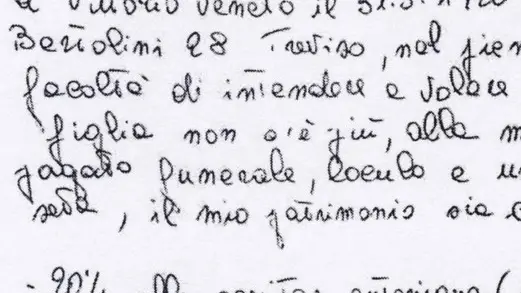 a Vittorio Veneto il 31.5.
Bertolini 28 Treviso, nel pien
facoltà di intendere e volere
figlia non c'è più, alla m
pagato funerale, loculo e u
serà, il mio patrimonio sia
- 20%